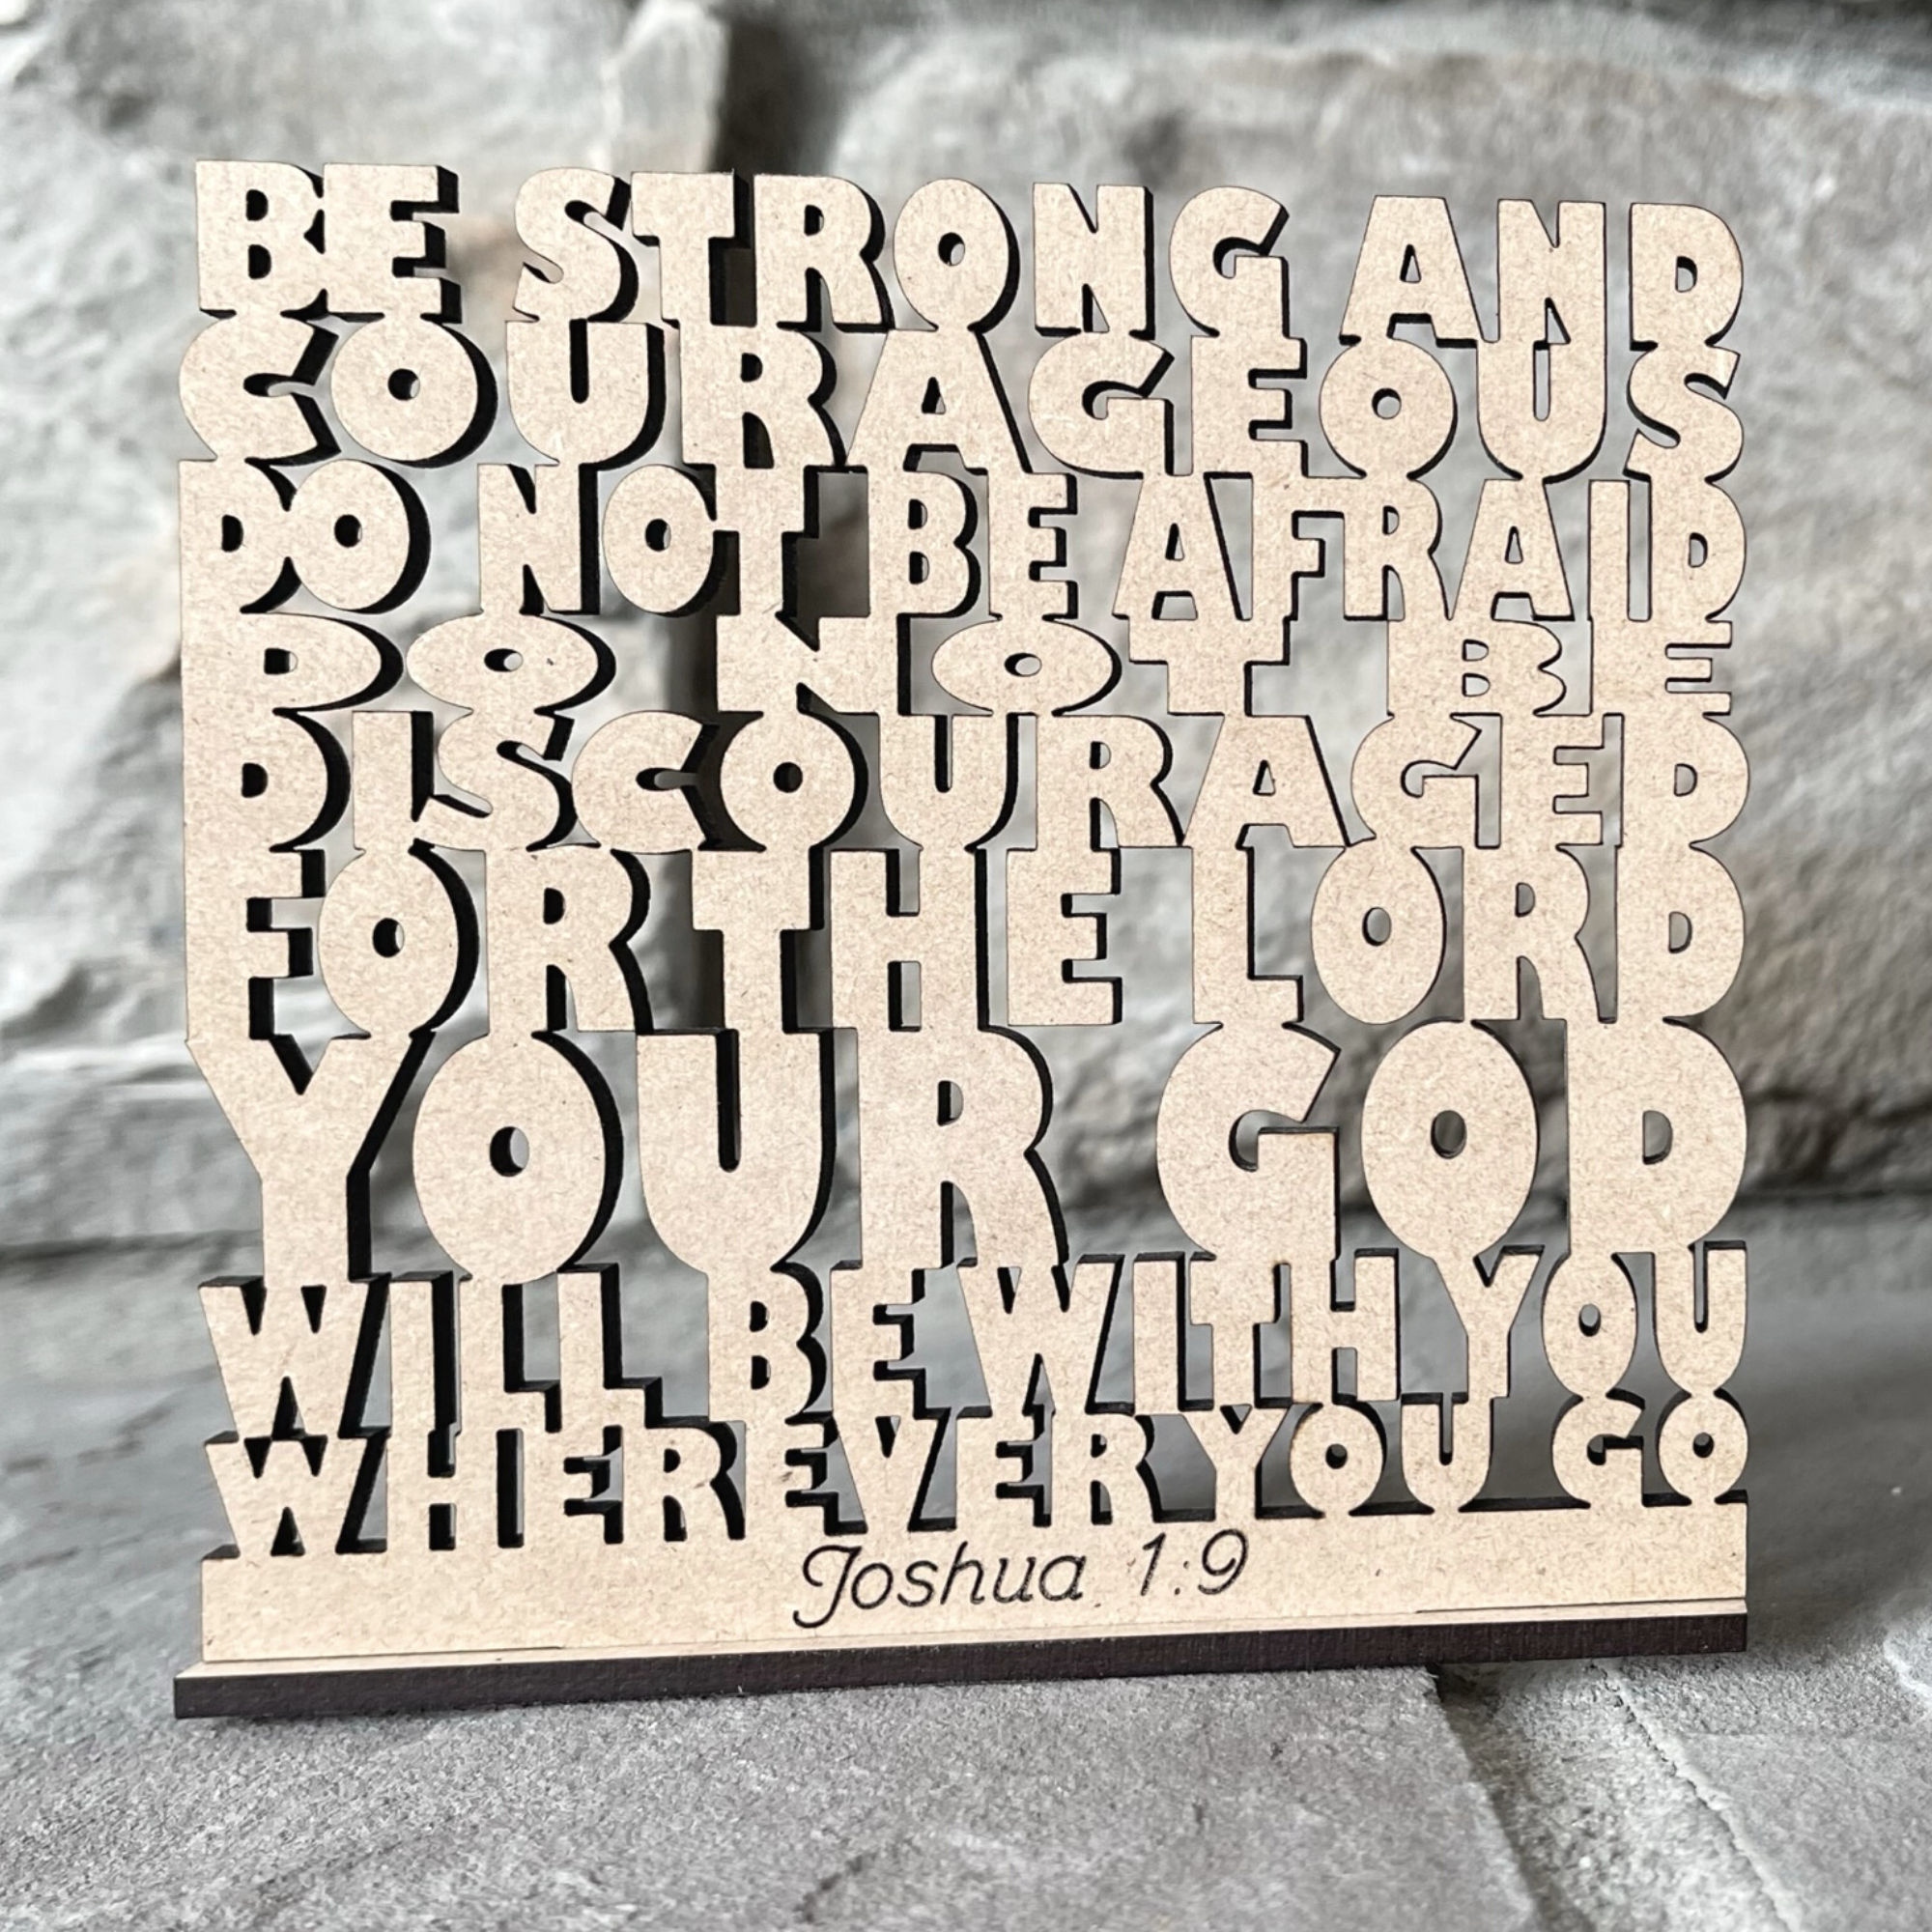 BE STRONG AND
COURAGEOUS
DO NOT BE AFRAID
DO NOT BE
DISCOURAGED
FOR THE LORD
YOUR GOD
WILL BE WITH YOU
WHEREVER YOU GO
Joshua 1:9